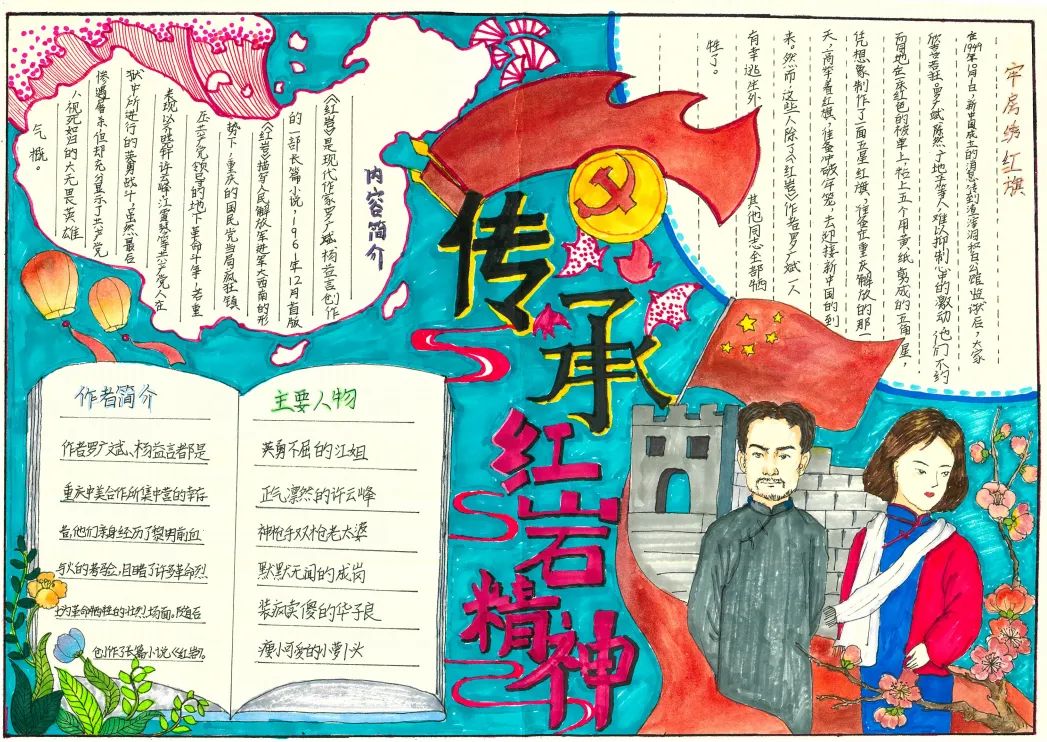 内容简介
《红岩》是现代作家罗广斌、杨益言创作
的一部长篇小说，1961年12月首版
《红岩》描写人民解放军进军大西南的形
势下，重庆的国民党当局疯狂镇
压共产党领导的地下革命斗争，着重
表现以齐晓轩、许云峰、江雪琴等共产党人在
狱中所进行的英勇战斗，虽然最后
惨遭屠杀但却充分显示了共产党
人视死如归的大无畏英雄
气概。
牢房绣红旗
在1949年10月1日，新中国成立的消息传到渣滓洞和白公馆监狱后，大家
欣喜若狂。罗广斌、陈然、丁地平等人难以抑制心中的激动，他们不约
而同地在一床红色的被单上，粘上五个用黄纸剪成的五角星，
凭想象制作了一面五星红旗，准备在重庆解放的那一
天，高举着红旗，准备冲破牢笼，去迎接新中国的到
来。然而，这些人除了《红岩》作者罗广斌一人
有幸逃生外，其他同志全部牺
牲了。
传承
红岩
精神
作者简介
作者罗广斌、杨益言都是
重庆中美合作所集中营的幸存
者，他们亲身经历了黎明前血
与火的考验，目睹了许多革命烈
士为革命牺牲的壮烈场面，随后
创作了长篇小说《红岩》。
主要人物
英勇不屈的江姐
正气凛然的许云峰
神枪手双枪老太婆
默默无闻的成岗
装疯卖傻的华子良
瘦小可爱的小萝卜头